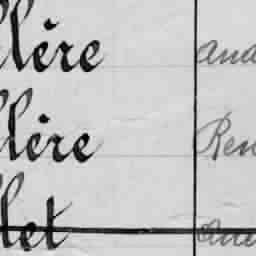 llère And
llère Ren
llet